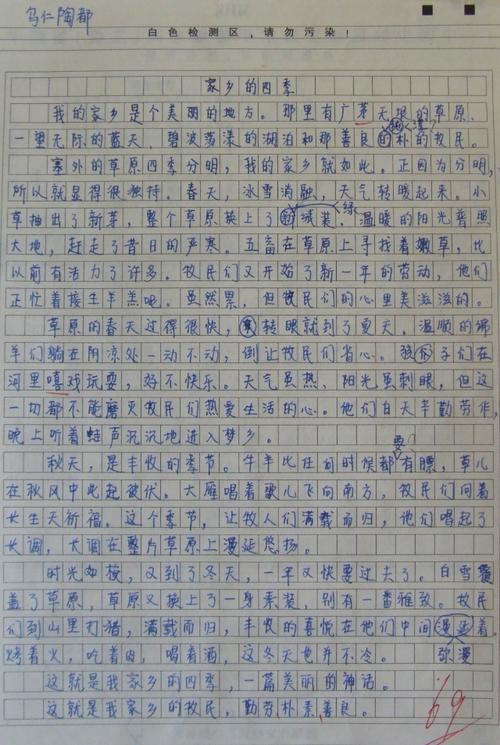 乌仁陶都
白色检测区，请勿污染！
家乡的四季
我的家乡是个美丽的地方。那里有广茅无垠的草原、
一望无际的蓝天、碧波荡漾的湖泊和那善良的朴的牧民。
塞外的草原四季分明，我的家乡就如此。正因为分明，
所以就显得很独特。春天，冰雪消融，天气转暖起来。小
草抽出了新芽，整个草原换上了绿装，温暖的阳光普照
大地，赶走了昔日的严寒。五畜在草原上寻找着嫩草，比
以前有活力了许多。牧民们又开始了新一年的劳动，他们
正忙着接生羊羔呢。虽然累，但牧民们的心里美滋滋的。
草原的春天过得很快，转眼就到了夏天。温顺的绵
羊们躺在阴凉处一动不动，倒让牧民们省心。孩子们在
河里嘻戏玩耍，好不快乐。天气虽热、阳光虽刺眼，但这
一切都不能磨灭牧民们热爱生活的心。他们白天辛勤劳作，
晚上听着蛙声沉沉地进入梦乡。
要
秋天，是丰收的季节。牛羊比任何时候都有膘，草儿
在秋风中此起彼伏。大雁唱着歌儿飞向南方，牧民们向着
长生天祈福。这个季节，让牧人们满载而归，他们唱起了
长调，大调在整片草原上漫延悠扬。
时光如梭，又到了冬天，一年又快要过去了。白雪覆
盖了草原，草原又换上了一身素装，别有一番雅致。牧民
们到山里打猎，满载而归，丰收的喜悦在他们中间漫延着。
烤着火，吃着肉，喝着酒，这冬天也并不冷。 弥漫
这就是我家乡的四季，一篇美丽的神话。
这就是我家乡的牧民，勤劳、朴素、善良。
69